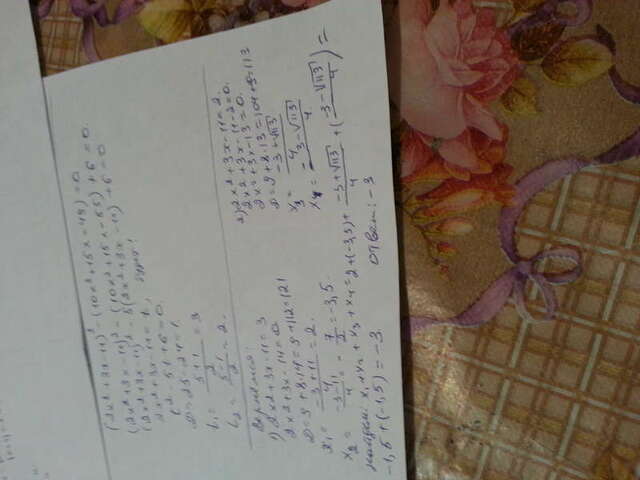 (2x² + 3x - 11)² - (10x² + 15x - 49) = 0
(2x² + 3x - 11)² - (10x² + 15x - 55) + 6 = 0.
(2x² + 3x - 11)² - 5(2x² + 3x - 11) + 6 = 0
2x² + 3x - 11 = t, будет!
t² - 5t + 6 = 0.
D = 25 - 24 = 1.
t₁ = (5+1)/2 = 3
t₂ = (5-1)/2 = 2.
Вернемся:
1) 2x² + 3x - 11 = 3
2x² + 3x - 14 = 0.
D = 9 + 8·14 = 9 + 112 = 121
x₁ = (-3+11)/4 = 2.
x₂ = (-3-11)/4 = -7/2 = -3,5.
2) 2x² + 3x - 11 = 2.
2x² + 3x - 11 - 2 = 0.
2x² + 3x - 13 = 0.
D = 9 + 8·13 = 104 + 9 = 113
x₃ = (-3+√113)/4
x₄ = (-3-√113)/4
Найдем: x₁ + x₂ + x₃ + x₄ = 2 + (-3,5) + (-3+√113)/4 + ((-3-√113)/4) =
-1,5 + (-1,5) = -3
Ответ: -3